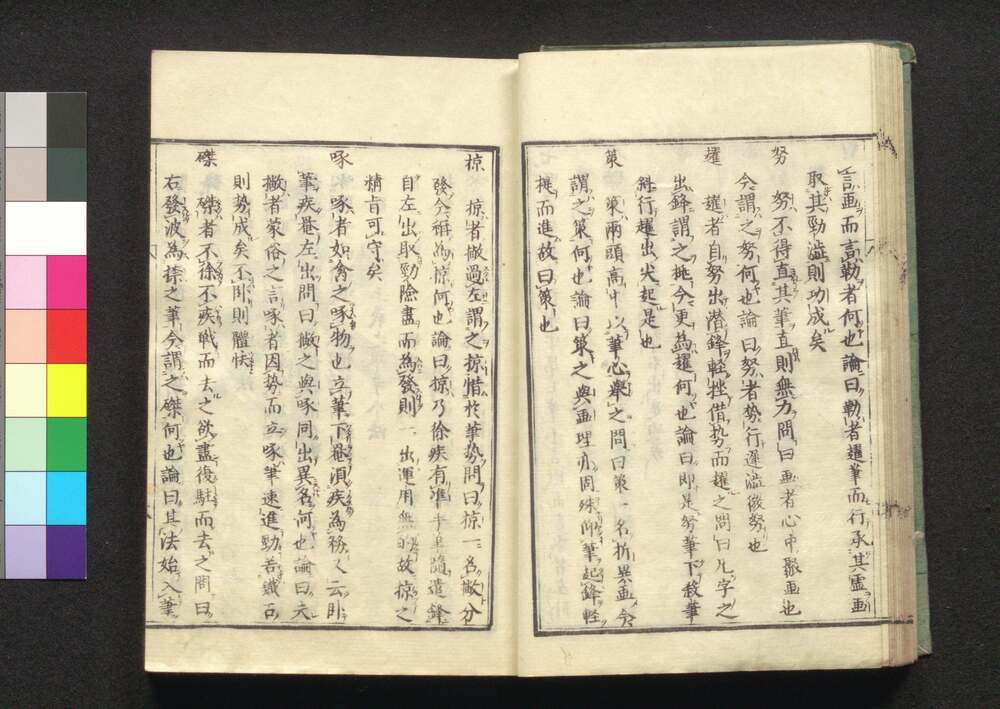 言画而言勒者何也論曰勒者趯筆而行承其虚画
取其勁澁則功成矣
努
努不得直其筆直則無力問曰画者心中聚画也
今謂之努何也論曰努者势行遲澁後努也
趯
趯者自努出潜鋒軽挫借势而趯之問曰凡字之
出鋒謂之挑今更為趯何也論曰即是努筆下殺筆
斜行趯出尖起是也
策
策兩頭高中以筆心舉之問曰策一名折異画今
謂之策何也論曰策之與画理亦同殊所筆起鋒軽
擡而進故曰策也
掠
掠者撇過左謂之掠借於筆势問曰掠一名撇分
發今稱為掠何也論曰掠乃徐疾有准手
自左出取勁險盡而為發則一出運用無的故掠之
精旨可守矣
啄
啄者如禽之啄物也立筆下罨須疾為務又云卧
筆疾罨左出問曰撇之與啄同出異名何也論曰夫
撇者蒙俗之言啄者因势而立啄筆速進勁若鐵石
則势成矣不則體怯
磔
磔者不徐不疾戰而去之欲盡復駐而去之問曰
右發波為捺之筆今謂之磔何也論曰其法始入筆